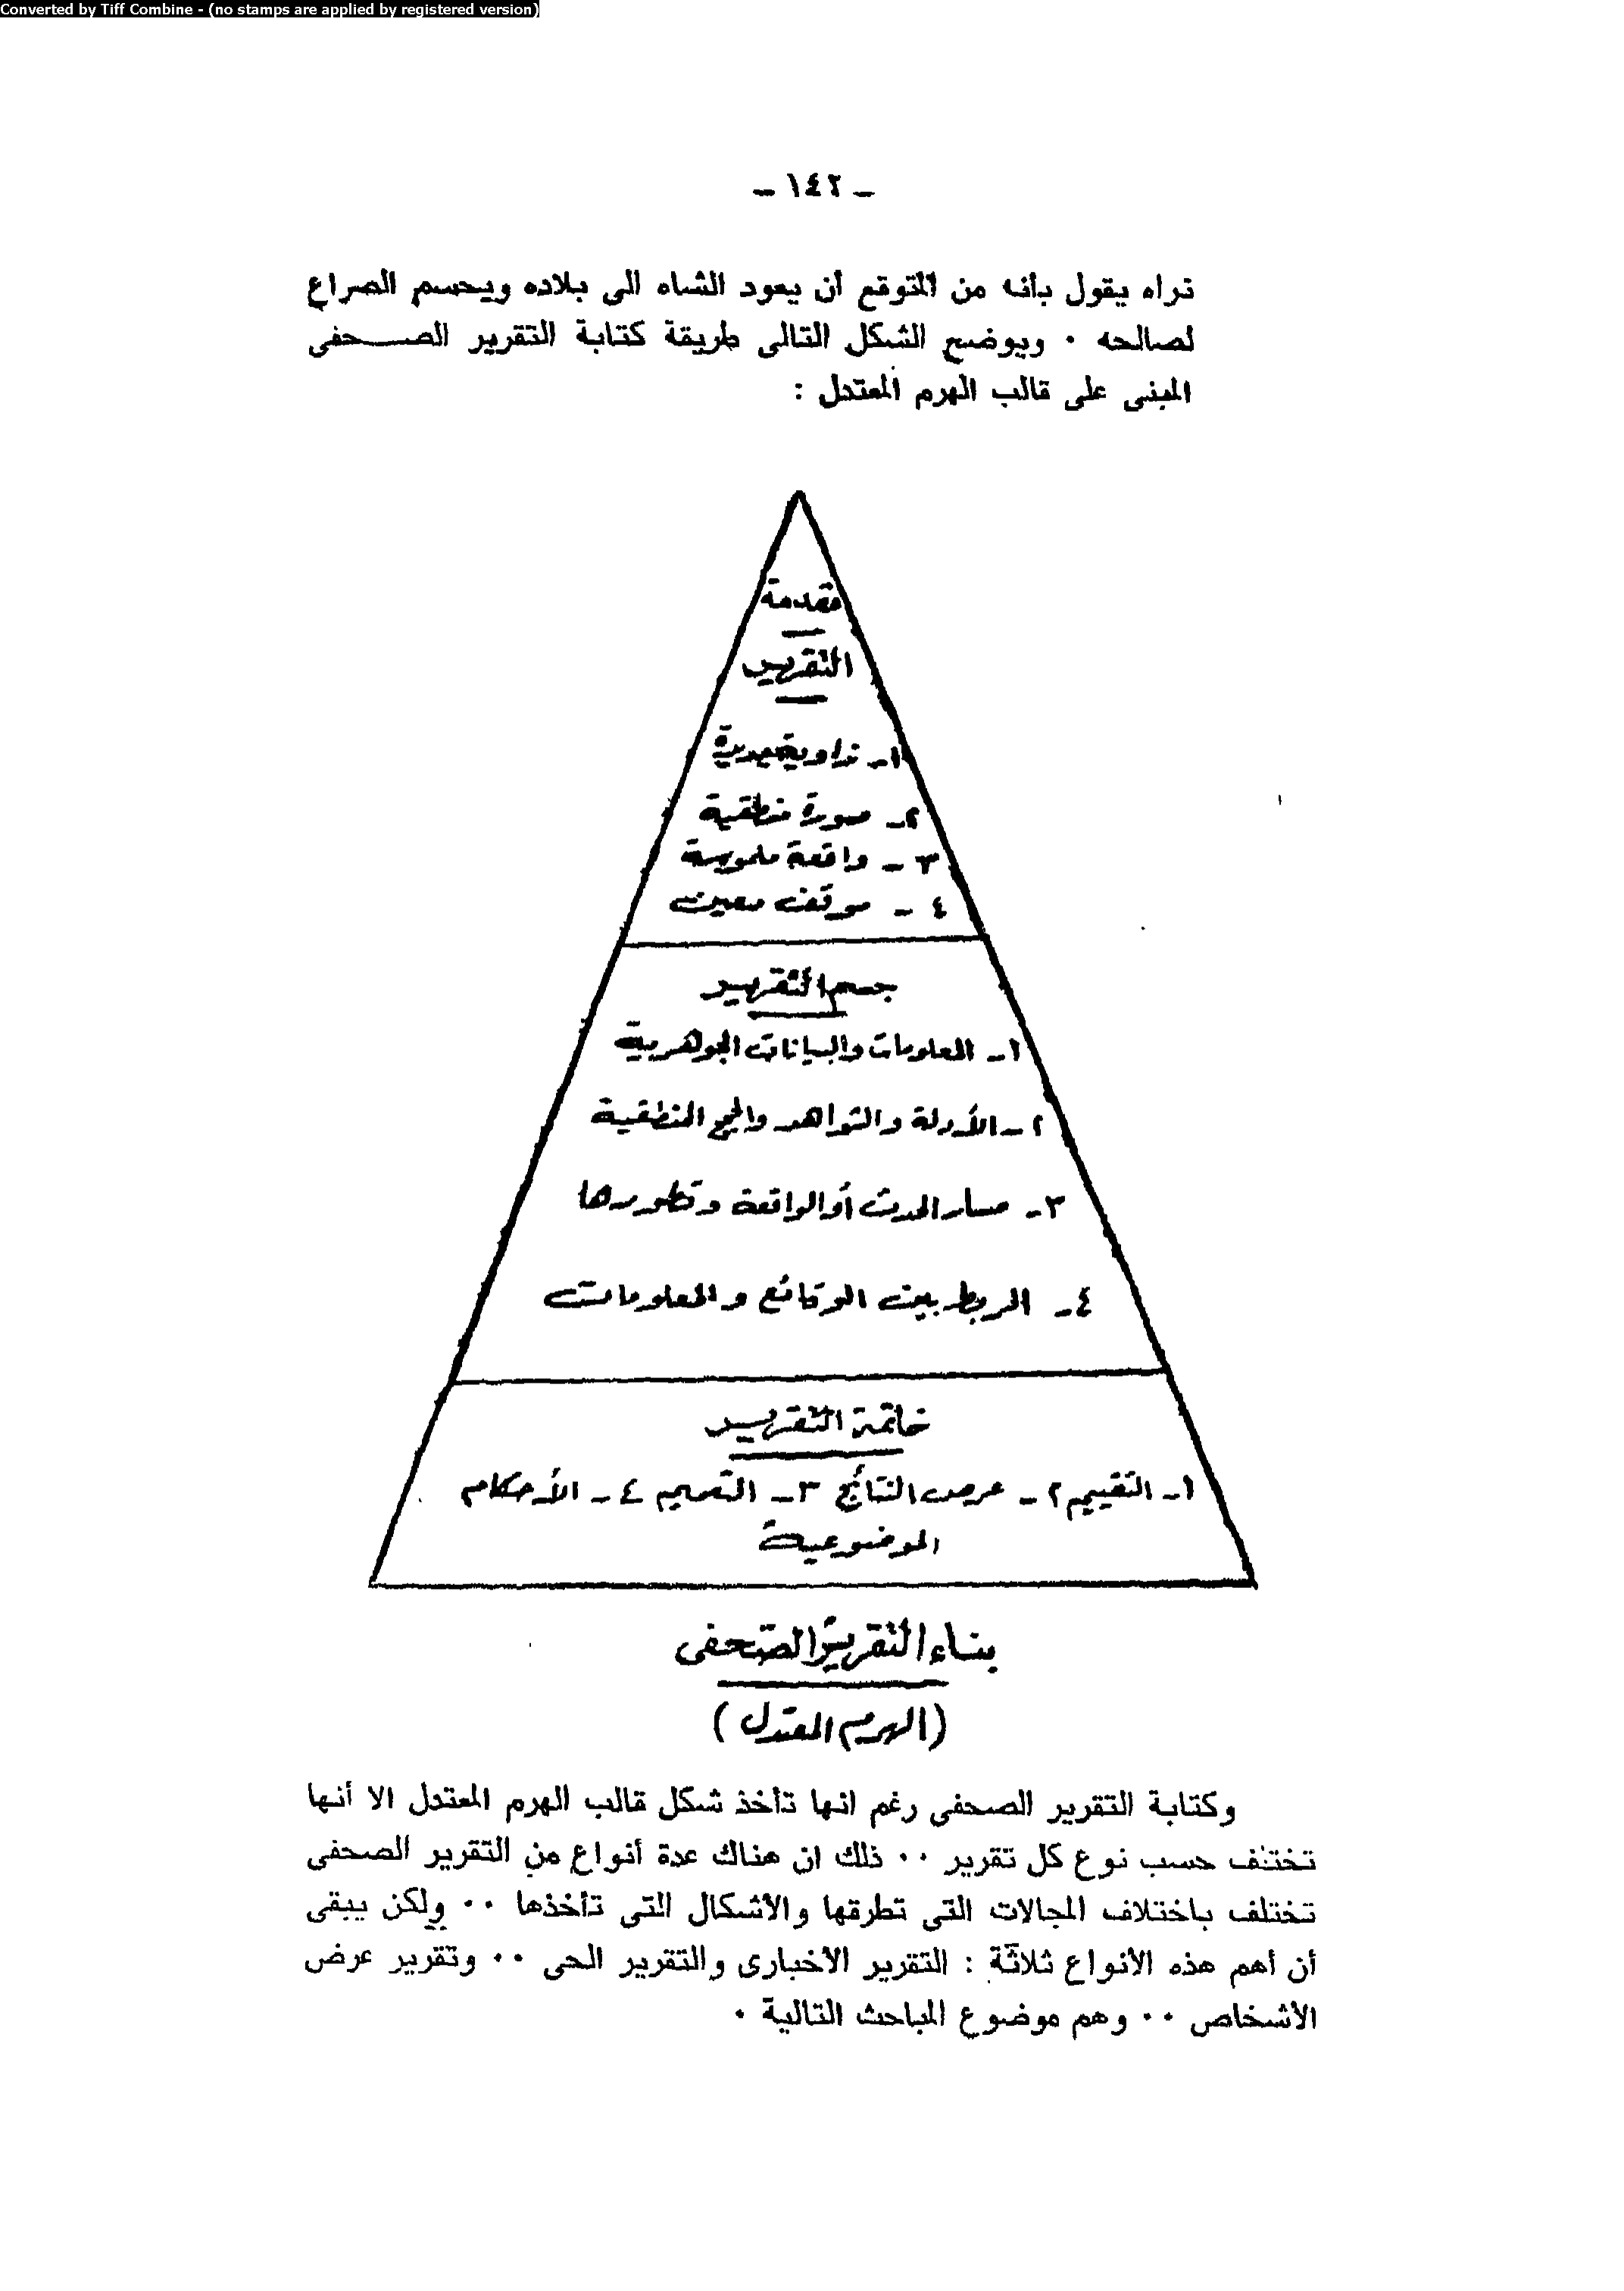 Converted by Tiff Combine - (no stamps are applied by registered version)
ـ ١٤٢ ـ
تراه يقول بأنه من المتوقع أن يعود الشاه الى بلاده ويحسم الصراع
لصالحه ٠ ويوضح الشكل التالى طريقة كتابة التقرير الصـــحفى
المبنى على قالب الهرم المعتدل :
مقدمة
التقرير
١ـ زاوية جديدة
٢ـ صورة منطقية
٣ ـ واقعة ملموسة
٤ ـ موقف معين
جسم التقرير
١ـ المعلومات والبيانات الجوهرية
٢ ـ الأدلة والشواهد والحجج المنطقية
٣ـ مسار الحدث أو الواقعة وتطورها
٤ـ الربط بين الوقائع والمعلومات
خاتمة التقرير
١ـ التقييم ٢ـ عرض النتائج ٣ـ التعميم ٤ـ الأحكام
الموضوعية
بناء التقرير الصحفى
(الهرم المعتدل)
وكتابة التقرير الصحفى رغم انها تأخذ شكل قالب الهرم المعتدل الا أنها
تختلف حسب نوع كل تقرير ٠٠ ذلك ان هناك عدة أنواع من التقرير الصحفى
تختلف باختلاف المجالات التى تطرقها والأشكال التى تأخذها ٠٠ ولكن يبقى
أن أهم هذه الأنواع ثلاثة : التقرير الأخبارى والتقرير الحى ٠٠ وتقرير عرض
الأشخاص ٠٠ وهم موضوع المباحث التالية ٠